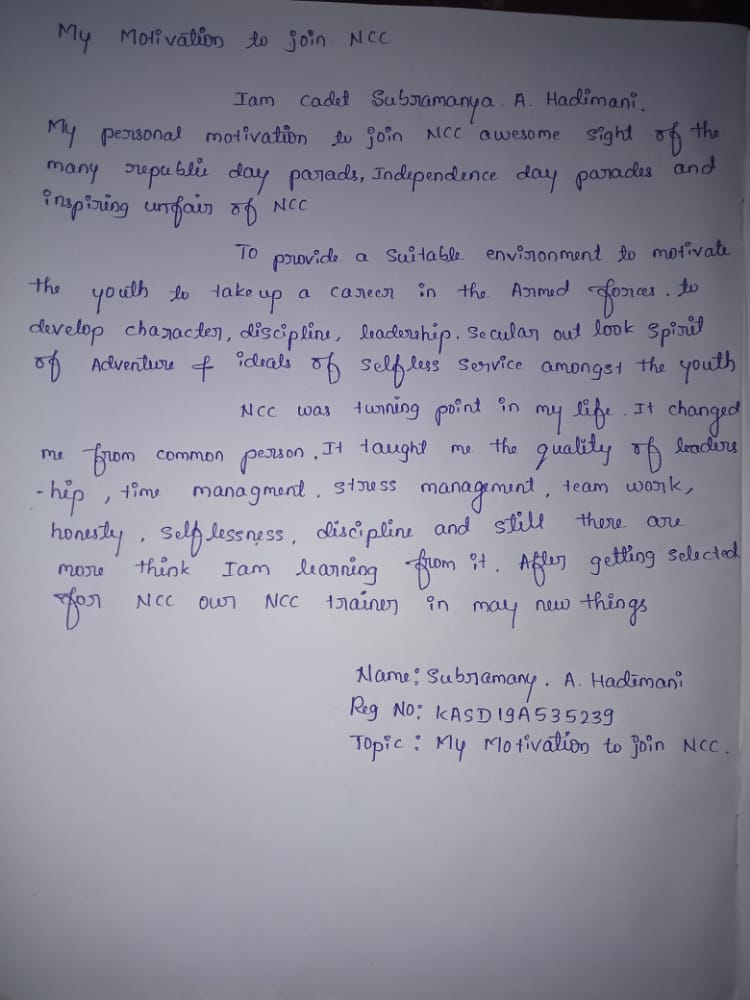 My Motivation to join NCC
Iam cadet Subramanya. A. Hadimani.
My personal motivation to join NCC awesome sight of the
many republic day parads, Independence day parades and
inspiring unfair of NCC
To provide a suitable environment to motivate
the youth to take up a career in the Armed forces. to
develop character, discipline, leadership. Secular out look Spirit
of Adventure & ideals of selfless service amongst the youth
NCC was turning point in my life. It changed
me from common person. It taught me the quality of leaders
-hip, time managment, stress management, team work,
honesty, selflessness, discipline and still there are
more think Iam learning from it. After getting selected
for NCC our NCC trainer in may new things
Name: Subramany. A. Hadimani
Reg No: KASD19A535239
Topic: My Motivation to join NCC.